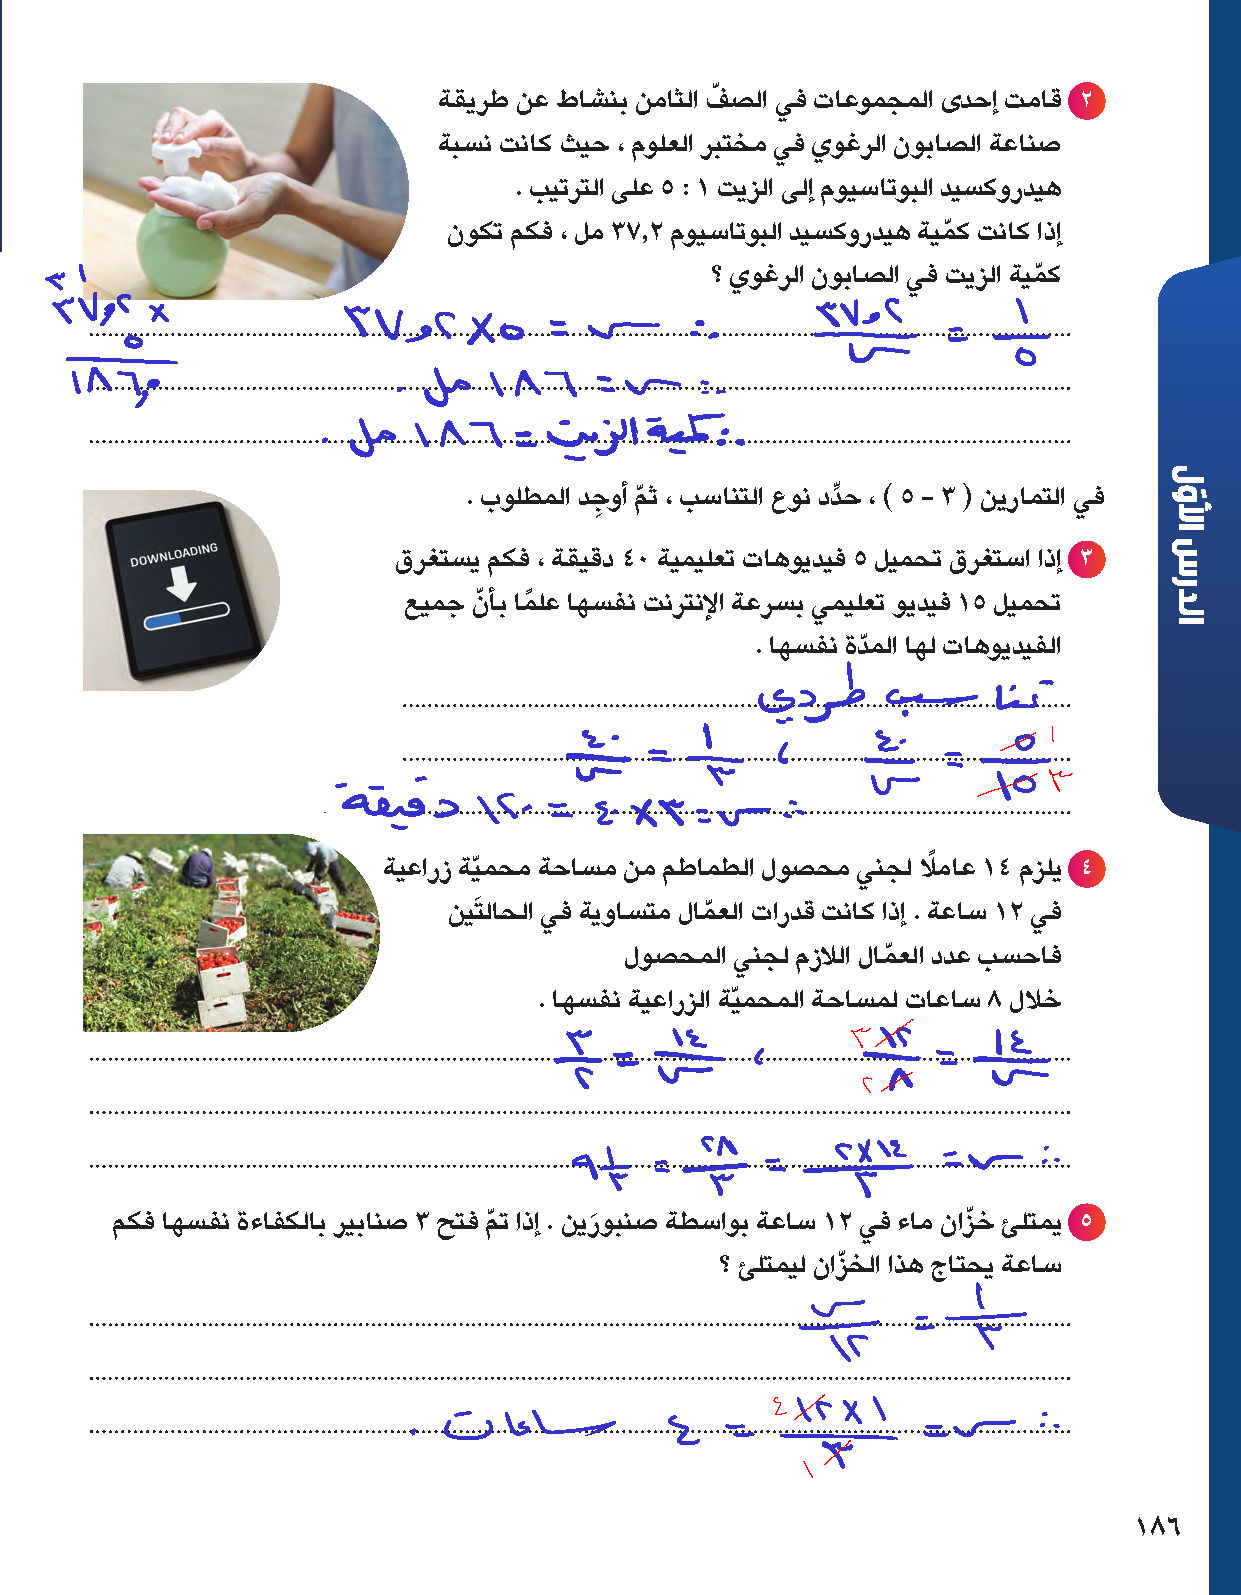 ٢ قامت إحدى المجموعات في الصفّ الثامن بنشاط عن طريقة
صناعة الصابون الرغوي في مختبر العلوم ، حيث كانت نسبة
هيدروكسيد البوتاسيوم إلى الزيت ١ : ٥ على الترتيب .
إذا كانت كمّية هيدروكسيد البوتاسيوم ٣٧,٢ مل ، فكم تكون
كمّية الزيت في الصابون الرغوي ؟
١/٥ = ٣٧,٢/س ∴ س = ٥ × ٣٧,٢
٣ ١
٣٧,٢ ×
٥
١٨٦,٠
∴ س = ١٨٦ مل .
∴ كمية الزيت = ١٨٦ مل .
في التمارين ( ٣ – ٥ ) ، حدِّد نوع التناسب ، ثمّ أوجِد المطلوب .
٣ إذا استغرق تحميل ٥ فيديوهات تعليمية ٤٠ دقيقة ، فكم يستغرق
تحميل ١٥ فيديو تعليمي بسرعة الإنترنت نفسها علمًا بأنّ جميع
الفيديوهات لها المدّة نفسها .
DOWNLOADING
تناسب طردي
٥ ١/١٥ ٣ = ٤٠/س ، ١/٣ = ٤٠/س
∴ س = ٣ × ٤٠ = ١٢٠ دقيقة
٤ يلزم ١٤ عاملًا لجني محصول الطماطم من مساحة محميّة زراعية
في ١٢ ساعة . إذا كانت قدرات العمّال متساوية في الحالتَين
فاحسب عدد العمّال اللازم لجني المحصول
خلال ٨ ساعات لمساحة المحميّة الزراعية نفسها .
١٤/س = ١٢ ٣/٨ ٢ ، ١٤/س = ٣/٢
∴ س = ١٤×٢/٣ = ٢٨/٣ = ٩ ١/٣
٥ يمتلئ خزّان ماء في ١٢ ساعة بواسطة صنبورَين . إذا تمّ فتح ٣ صنابير بالكفاءة نفسها فكم
ساعة يحتاج هذا الخزّان ليمتلئ ؟
١/٣ = س/١٢
∴ س = ١×١٢ ٤/٣ ١ = ٤ ساعات .
الدرس الأوّل
١٨٦